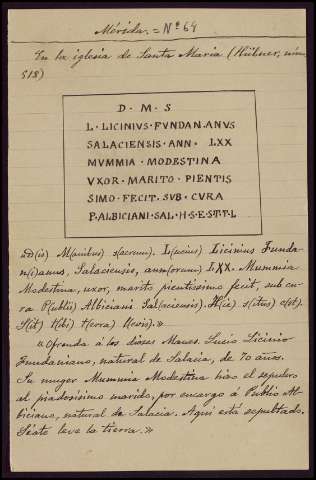 Mérida. = Nº 64
En la iglesia de Santa Maria (Hübner, núm.
518)
D · M · S
L · LICINIVS · FVNDAN · ANVS
SALACIENSIS · ANN · LXX
MVMMIA · MODESTINA
VXOR · MARITO · PIENTIS
SIMO · FECIT · SVB · CVRA
P·ALBICIANI·SAL·H·S·E·ST·T·L
«D(is) M(anibus) s(acrum). L(ucius) Licinius Funda-
n(i)anus, Salaciensis, ann(orum) LXX. Mummia
Modestina, uxor, marito pientissimo fecit, sub cu-
ra P(ublii) Albiciani Sal(aciensis). H(ic) s(itus) e(st).
S(it) t(ibi) t(erra) l(evis).»
«Ofrenda á los dioses Manes. Lucio Licinio
Fundaniano, natural de Salacia, de 70 años.
Su muger Mummia Modestina hizo el sepulcro
al piadosísimo marido, por encargo á Publio Al-
biciano, natural de Salacia. Aquí está sepultado.
Séate leve la tierra.»